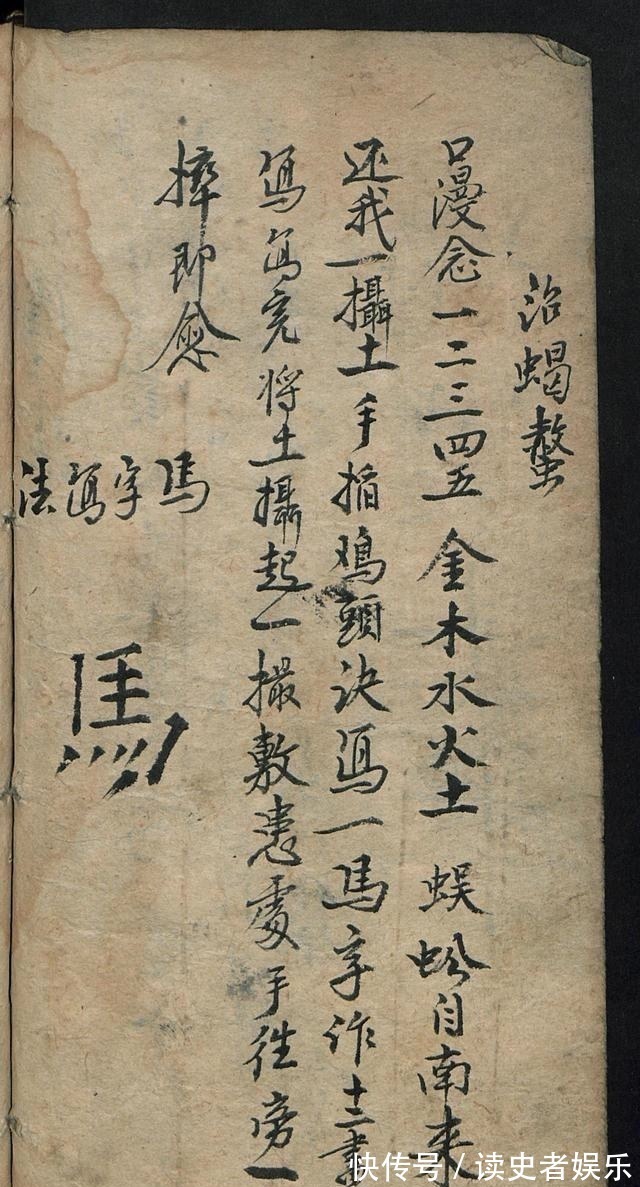 治蝎螫
口漫念一二三四五金木水火土蜈蚣自南来
还我一攝土手掐鸡頭决写一馬字作十二畫
写写完将土攝起一撮敷患處手往旁一
摔即愈
馬字写法
馬
快传号/读史者娱乐